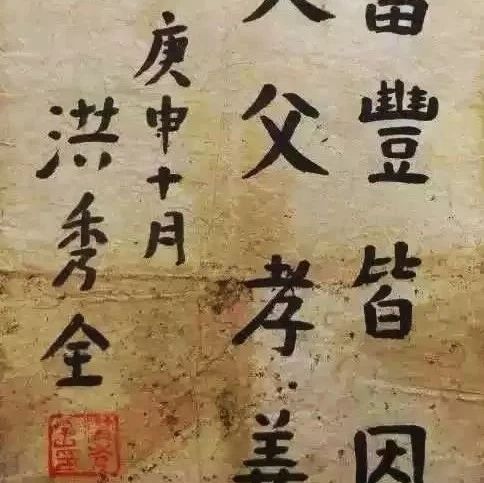 豐皆因
父孝義
庚申十月
洪秀全